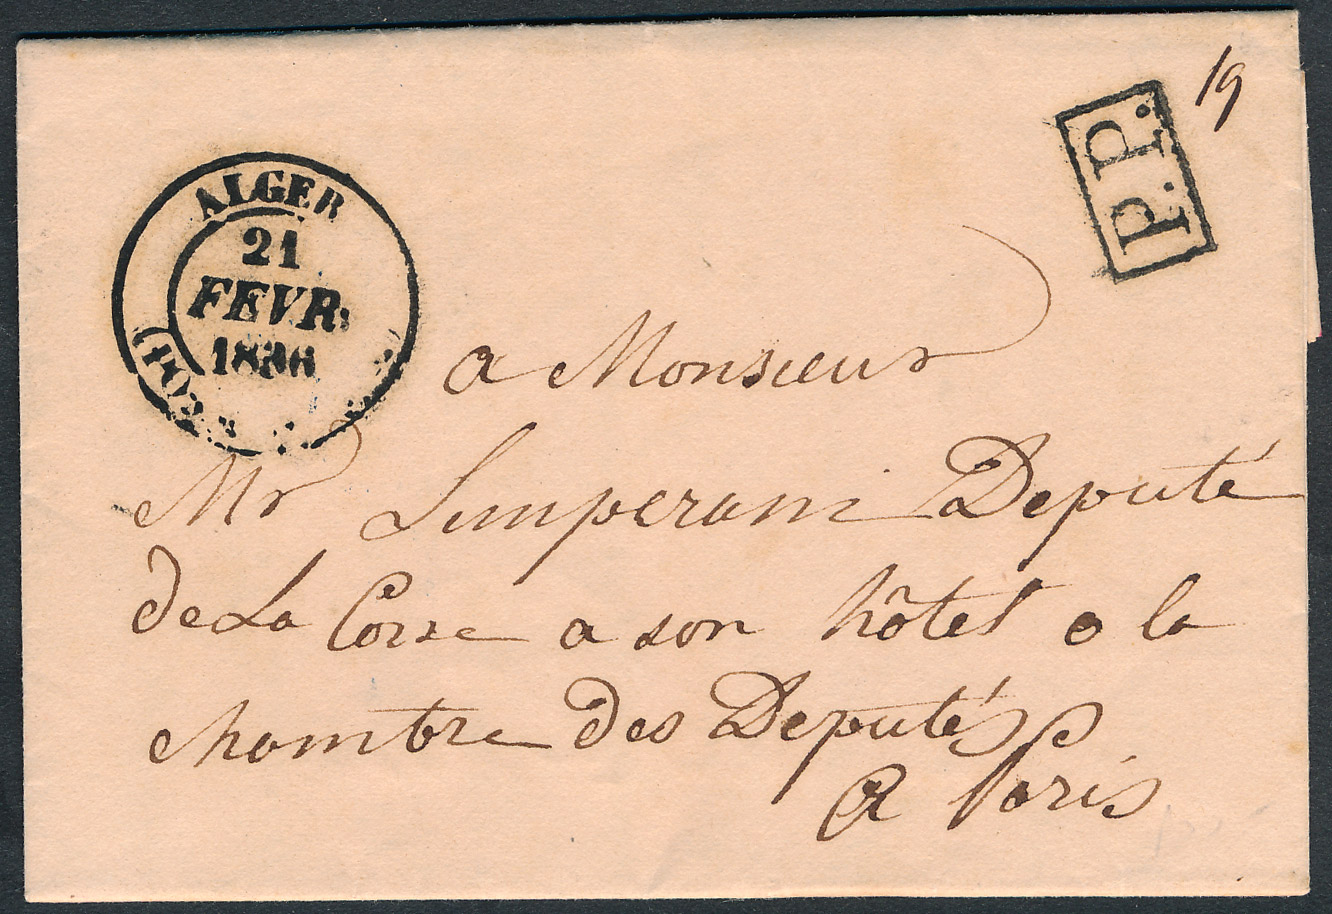 19
P.P.
ALGER
21
FEVR.
1836
(POS
a Monsieur
Mr Limperani Deputé
de La Corse a son hôtel a la
chambre des Deputés
a Paris